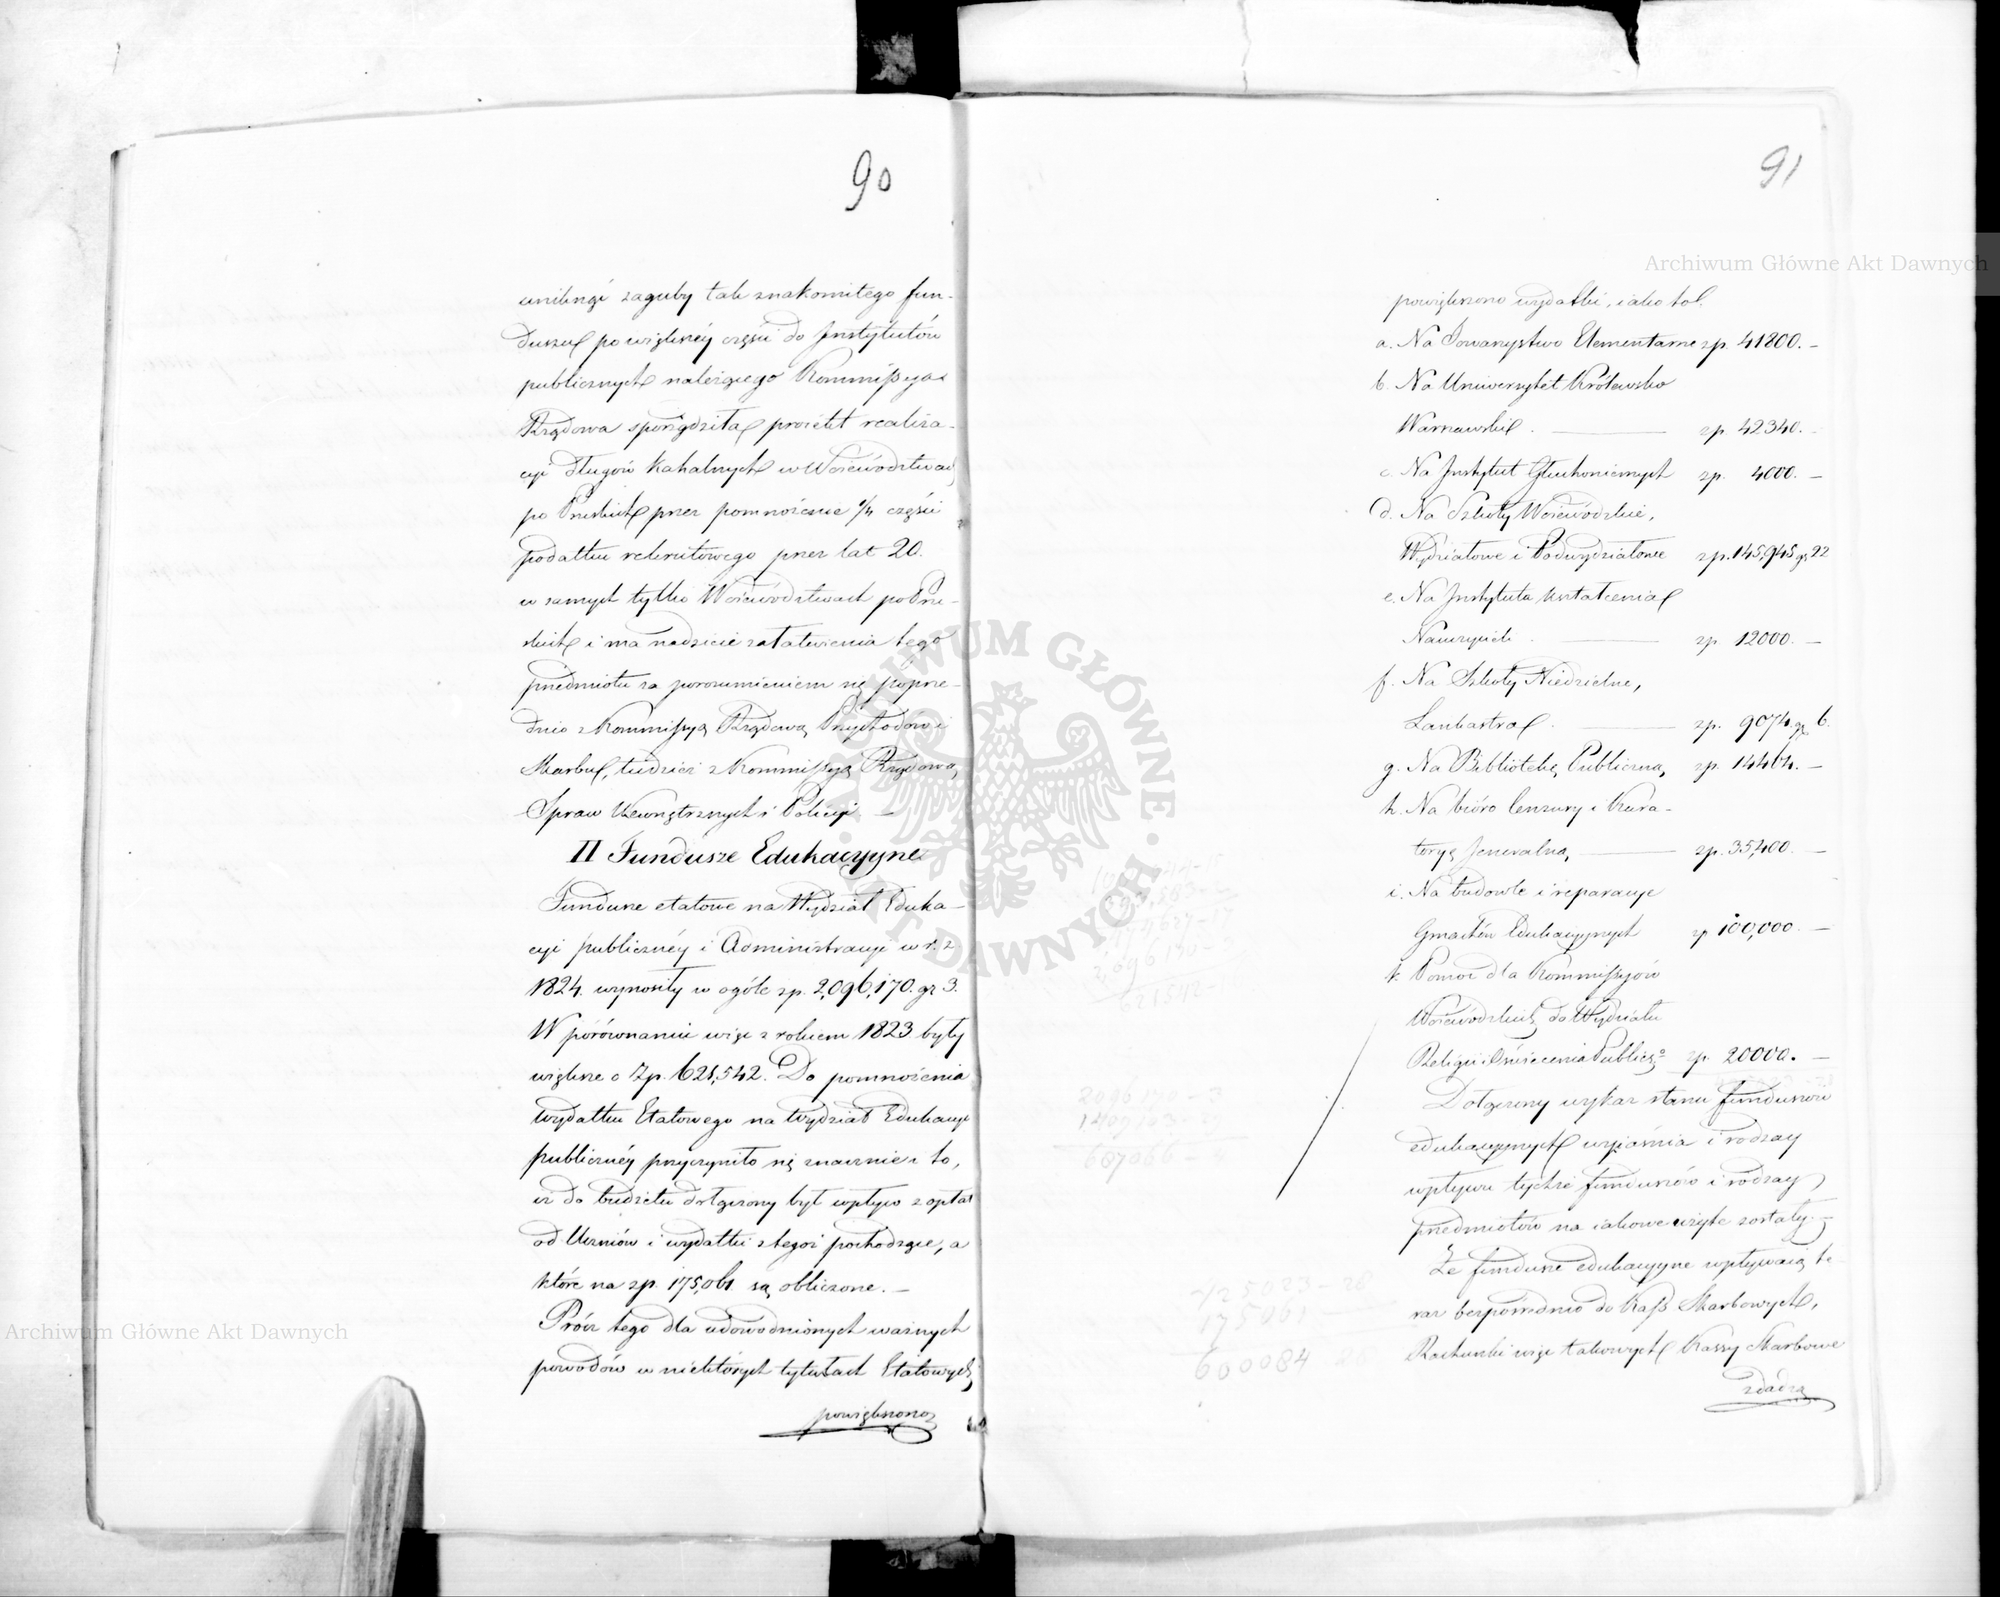 90
uniknąć zaguby tak znakomitego fun-
duszu po większéy części do Instytutów
publicznych należącego Kommissya
Rządowa sporządziła proiekt realiza-
cyi długów Kahalnych w Woiewództwach
po Pruskich przez pomnożenie 1/4 części
podatku rekrutowego przez lat 20.
w samych tylko Woiewództwach po Pru-
skich i ma nadzieię załatwienia tego
przedmiotu za porozumieniem się poprze-
dnio z Kommissyą Rządową Przychodów i
Skarbu, tudzież z Kommissyą Rządową
Spraw Wewnętrznych i Policyi. —
II Fundusze Edukacyyne
Fundusze etatowe na Wydział Eduka-
cyi publicznéy i Administracyi w r. z
1824. wynosiły w ogóle zp. 2,096,170. gr 3.
W porównaniu więc z rokiem 1823 były
większe o Zp. 621,542. Do pomnożenia
wydatku Etatowego na Wydział Edukacyi
publicznéy przyczyniło się znacznie i to,
iż do budżetu dołączony był wpływ z opłat
od Uczniów i wydatki z tegoż pochodzące, a
które na zp. 175,061 są obliczone. —
Prócz tego dla udowodnionych ważnych
powodów w niektórych tytułach Etatowych
powiększono
91
powiększono wydatki, iako to:
a. Na Towarzystwo Elementarne zp. 41800. —
b. Na Uniwersytet Królewsko
Warszawski. — zp. 42340. —
c. Na Instytut Głuchoniemych zp. 4000. —
d. Na Szkoły Woiewódzkie,
Wydziałowe i Podwydziałowe zp. 145,945 gr. 22
e. Na Instytuta kształcenia
Nauczycieli. — zp. 12000. —
f. Na Szkoły Niedzielne,
Lankastra. — zp. 9074 gr 6.
g. Na Bibliotekę Publiczną, zp. 14464. —
h. Na bióro Cenzury i Kura-
toryę Jeneralną, — zp. 35,400. —
i. Na budowle i reparacye
Gmachów Edukacyynych zp 100,000. —
k. Pomoc dla Kommissyów
Woiewódzkich do Wydziału
Religii i Oświecenia Publiczo zp. 20000. —
Dołączony wykaz stanu funduszów
edukacyynych wyiaśnia i rodzay
wpływu tychże funduszów i rodzay
przedmiotów na iakowe użyte zostały. —
Że fundusze edukacyyne wpływaią te-
raz bezpośrednio do Kass Skarbowych,
Rachunki więc takowych Kassy Skarbowe
zdadzą
2,096,170 - 3
621542 -
2096170 - 3
687066 -
175061
600084
Archiwum Główne Akt Dawnych
Archiwum Główne Akt Dawnych
ARCHIWUM GŁÓWNE AKT DAWNYCH